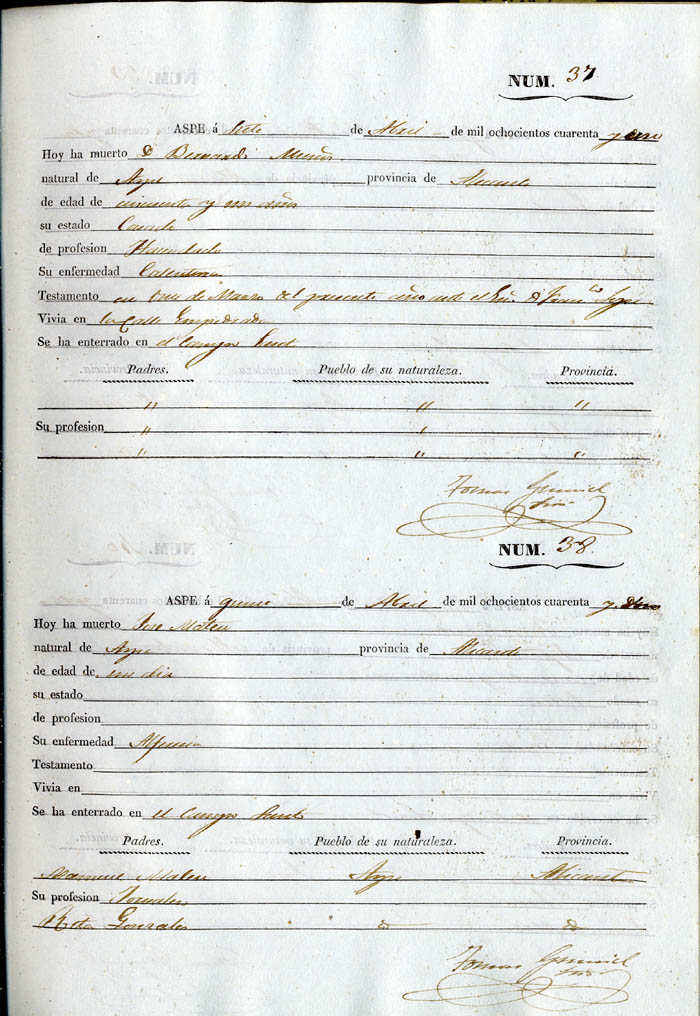 NUM. 37
ASPE á siete de Abril de mil ochocientos cuarenta y
Hoy ha muerto Dn Bernardo Muños
natural de Aspe provincia de Alicante
de edad de cincuenta y un años
su estado Casado
de profesion Hacendado
Su enfermedad Calentura
Testamento en de Marzo del presente año ante el Sno. Dn Franco
Vivia en la Calle Empedrada
Se ha enterrado en el Campo Santo
Padres. Pueblo de su naturaleza. Provincia.
" " "
Su profesion " " "
" " "
Tomas
NUM. 38.
ASPE á quince de Abril de mil ochocientos cuarenta y
Hoy ha muerto Jose Mateu
natural de Aspe provincia de Alicante
de edad de un dia
su estado
de profesion
Su enfermedad
Testamento
Vivia en
Se ha enterrado en el Campo Santo
Padres. Pueblo de su naturaleza. Provincia.
Manuel Mateu Aspe Alicante
Su profesion Jornalero
Rita Gonzales
Tomas